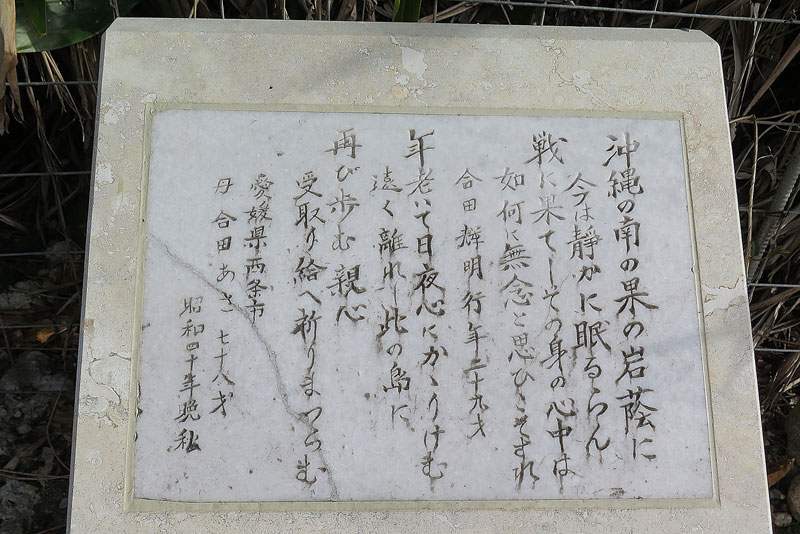 沖縄の南の果の岩蔭に
今は静かに眠るらん
戦に果てしその身の心中は
如何に無念と思ひこそすれ
合田輝明行年二十九才
年老いて日夜心にかゝりけむ
遠く離れし此の島に
再び歩む親心
受取り給へ祈りまつらむ
愛媛県西条市
母 合田あさ 七十八才
昭和四十年晩秋